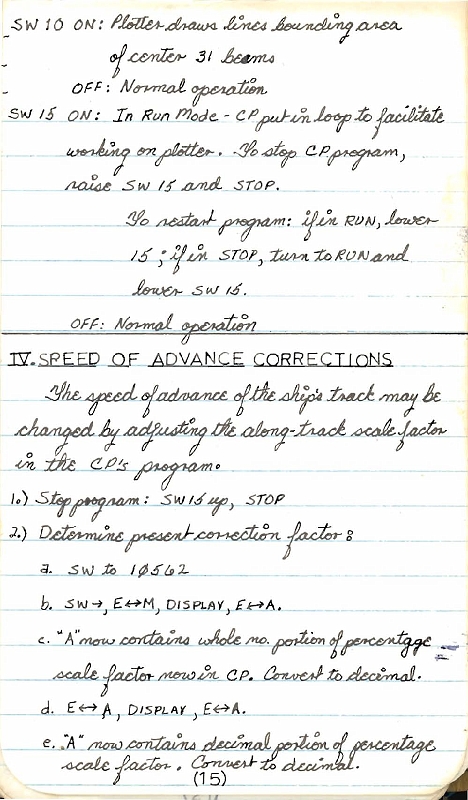 SW 10 ON: Plotter draws lines bounding area
of center 31 beams
OFF: Normal operation
SW 15 ON: In Run Mode - CP put in loop to facilitate
working on plotter. To stop CP program,
raise SW 15 and STOP.
To restart program: if in RUN, lower
15; if in STOP, turn to RUN and
lower SW 15.
OFF: Normal operation
IV. SPEED OF ADVANCE CORRECTIONS
The speed of advance of the ship's track may be
changed by adjusting the along-track scale factor
in the CP's program.
1.) Stop program: SW 15 up, STOP
2.) Determine present correction factor:
a. SW to 10562
b. SW→, E↔M, DISPLAY, E↔A.
c. "A" now contains whole no. portion of percentage
scale factor now in CP. Convert to decimal.
d. E↔A, DISPLAY, E↔A.
e. "A" now contains decimal portion of percentage
scale factor. Convert to decimal.
(15)